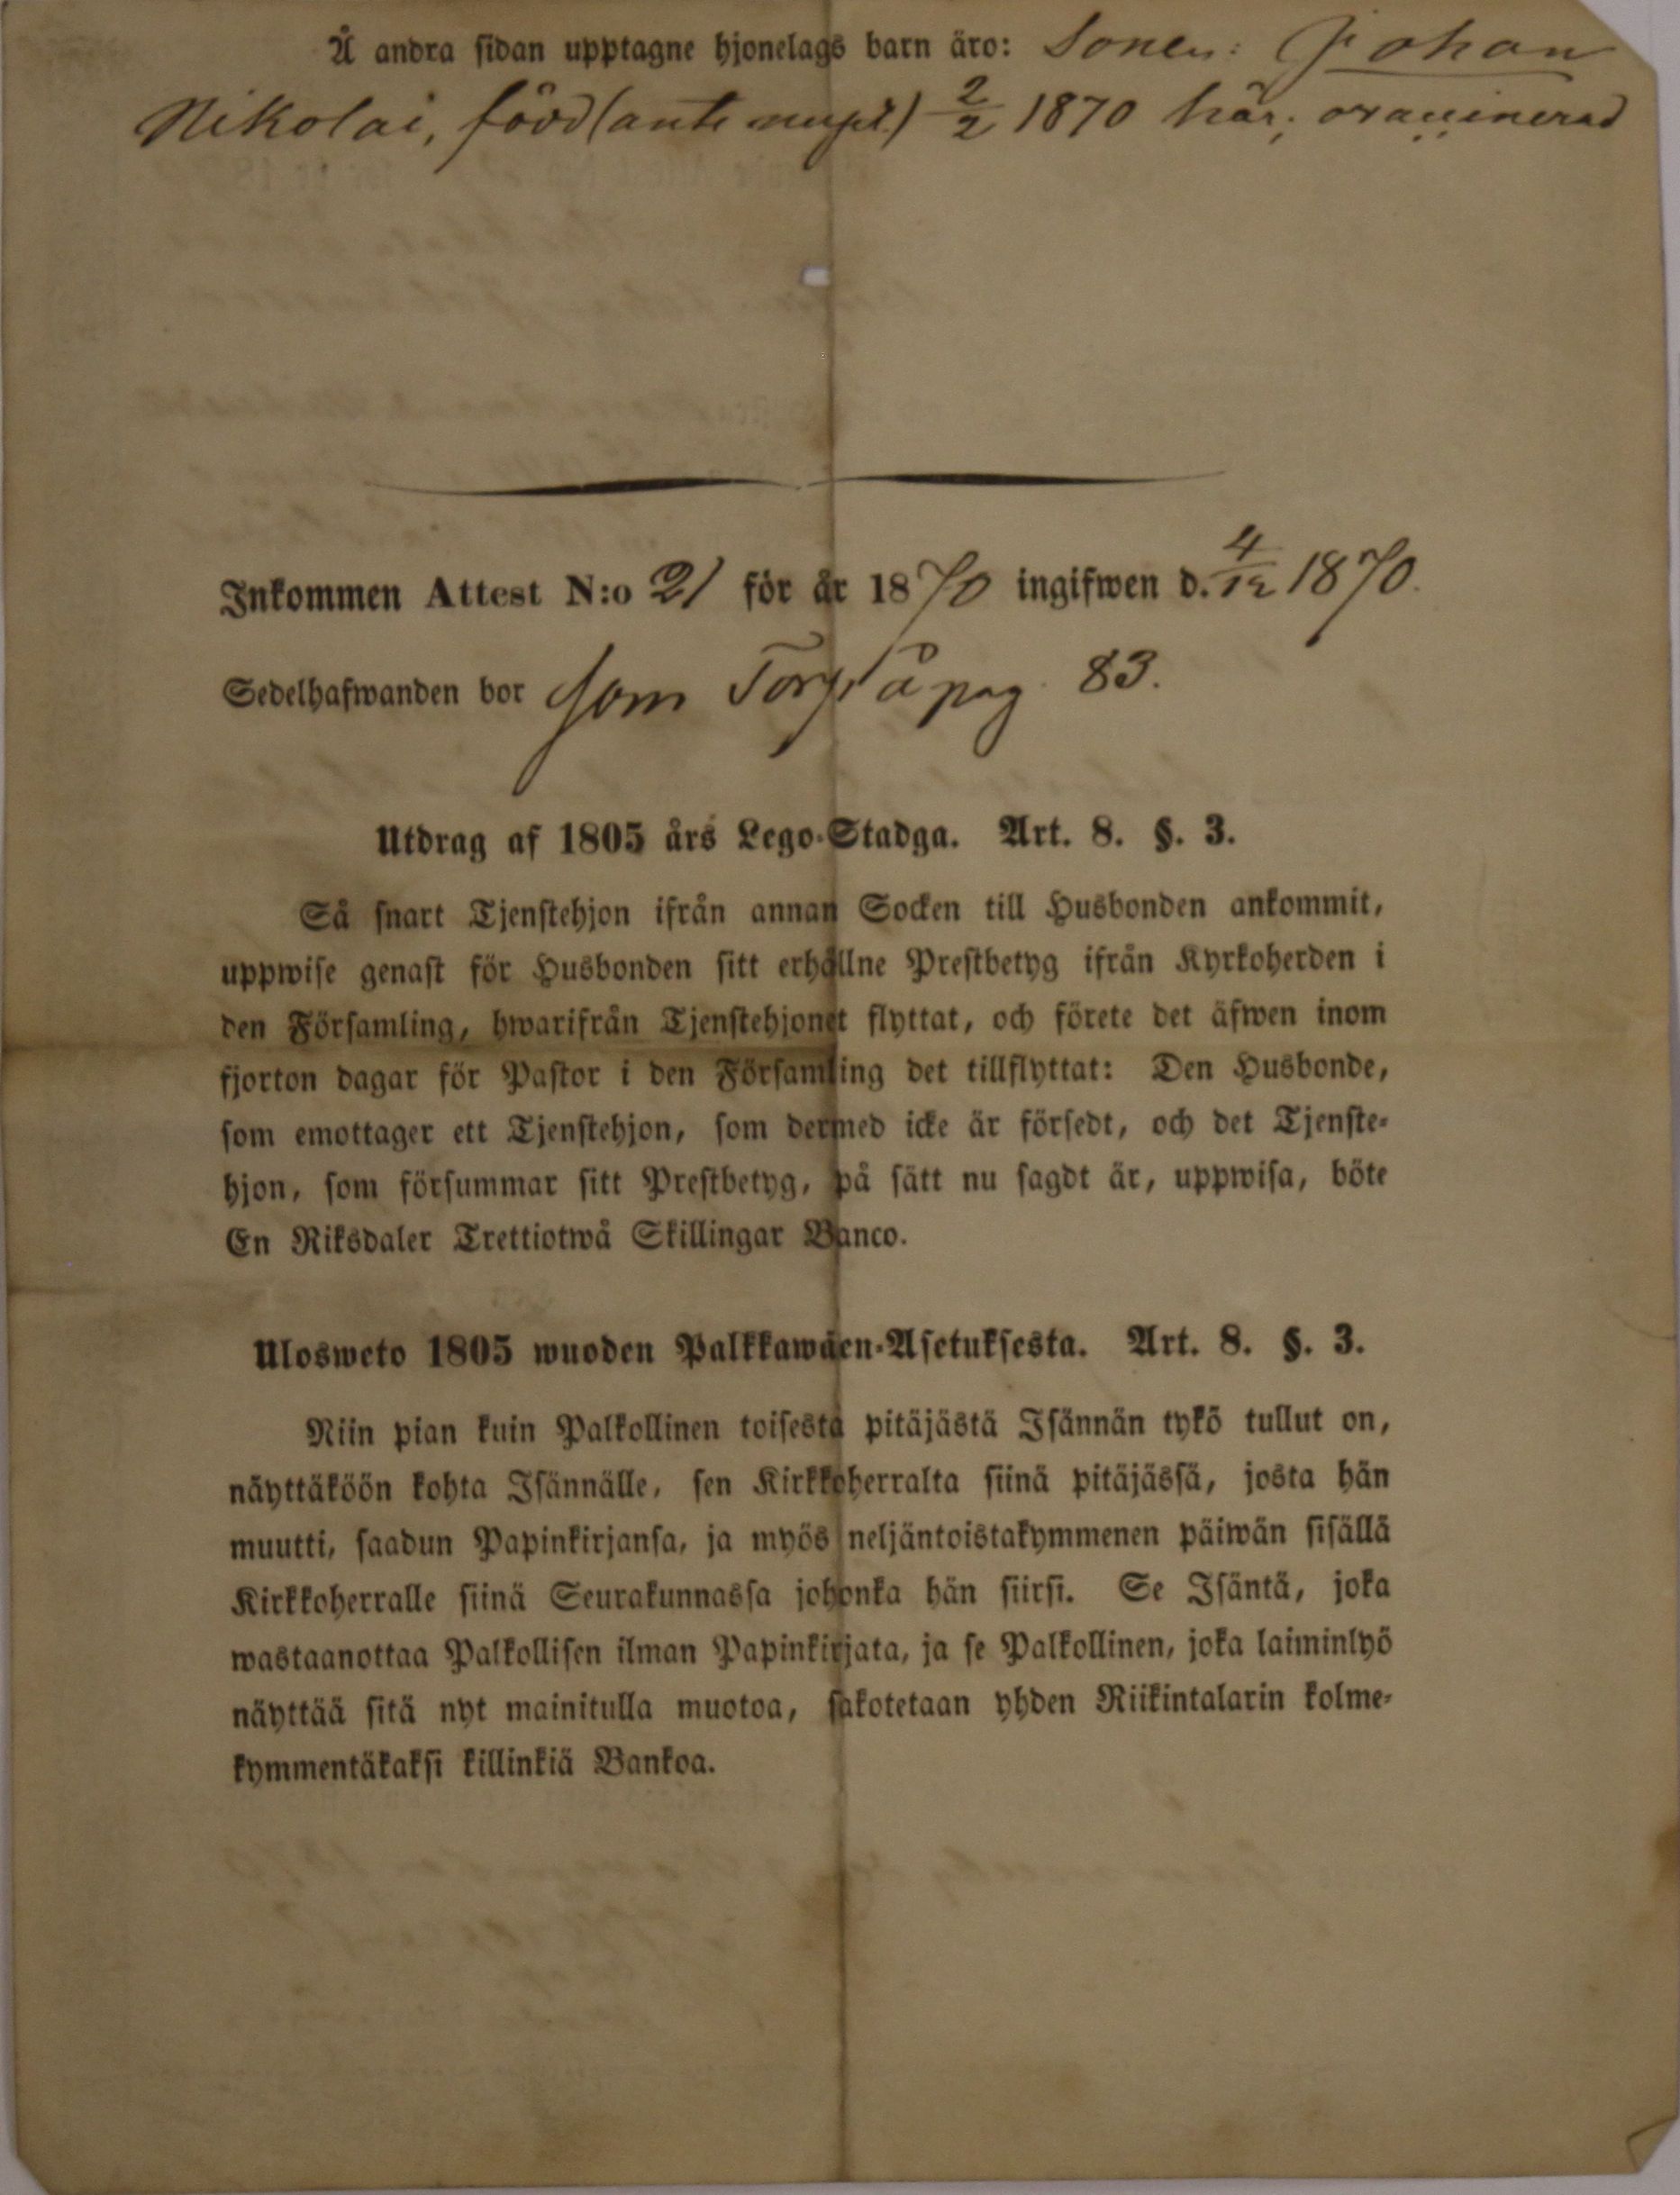 Å andra sidan upptagne hjonelags barn äro: Sonen: Johan
Nikolai, född (ante nupt.) 2/2 1870 här;
Inkommen Attest N:o 21 för år 1870 ingifwen d. 4/12 1870.
Sedelhafwanden bor som Torp. å pag. 83.
Utdrag af 1805 års Lego-Stadga. Art. 8. §. 3.
Så snart Tjenstehjon ifrån annan Socken till Husbonden ankommit,
uppwise genast för Husbonden sitt erhållne Prestbetyg ifrån Kyrkoherden i
den Församling, hwarifrån Tjenstehjonet flyttat, och förete det äfwen inom
fjorton dagar för Pastor i den Församling det tillflyttat: Den Husbonde,
som emottager ett Tjenstehjon, som dermed icke är försedt, och det Tjenste-
hjon, som försummar sitt Prestbetyg, på sätt nu sagdt är, uppwisa, böte
En Riksdaler Trettiotwå Skillingar Banco.
Ulosweto 1805 wuoden Palkkawäen-Asetuksesta. Art. 8. §. 3.
Niin pian kuin Palkollinen toisesta pitäjästä Isännän tykö tullut on,
näyttäköön kohta Isännälle, sen Kirkkoherralta siinä pitäjässä, josta hän
muutti, saadun Papinkirjansa, ja myös neljäntoistakymmenen päiwän sisällä
Kirkkoherralle siinä Seurakunnassa johonka hän siirsi. Se Isäntä, joka
wastaanottaa Palkollisen ilman Papinkirjata, ja se Palkollinen, joka laiminlyö
näyttää sitä nyt mainitulla muotoa, sakotetaan yhden Riikintalarin kolme-
kymmentäkaksi killinkiä Bankoa.